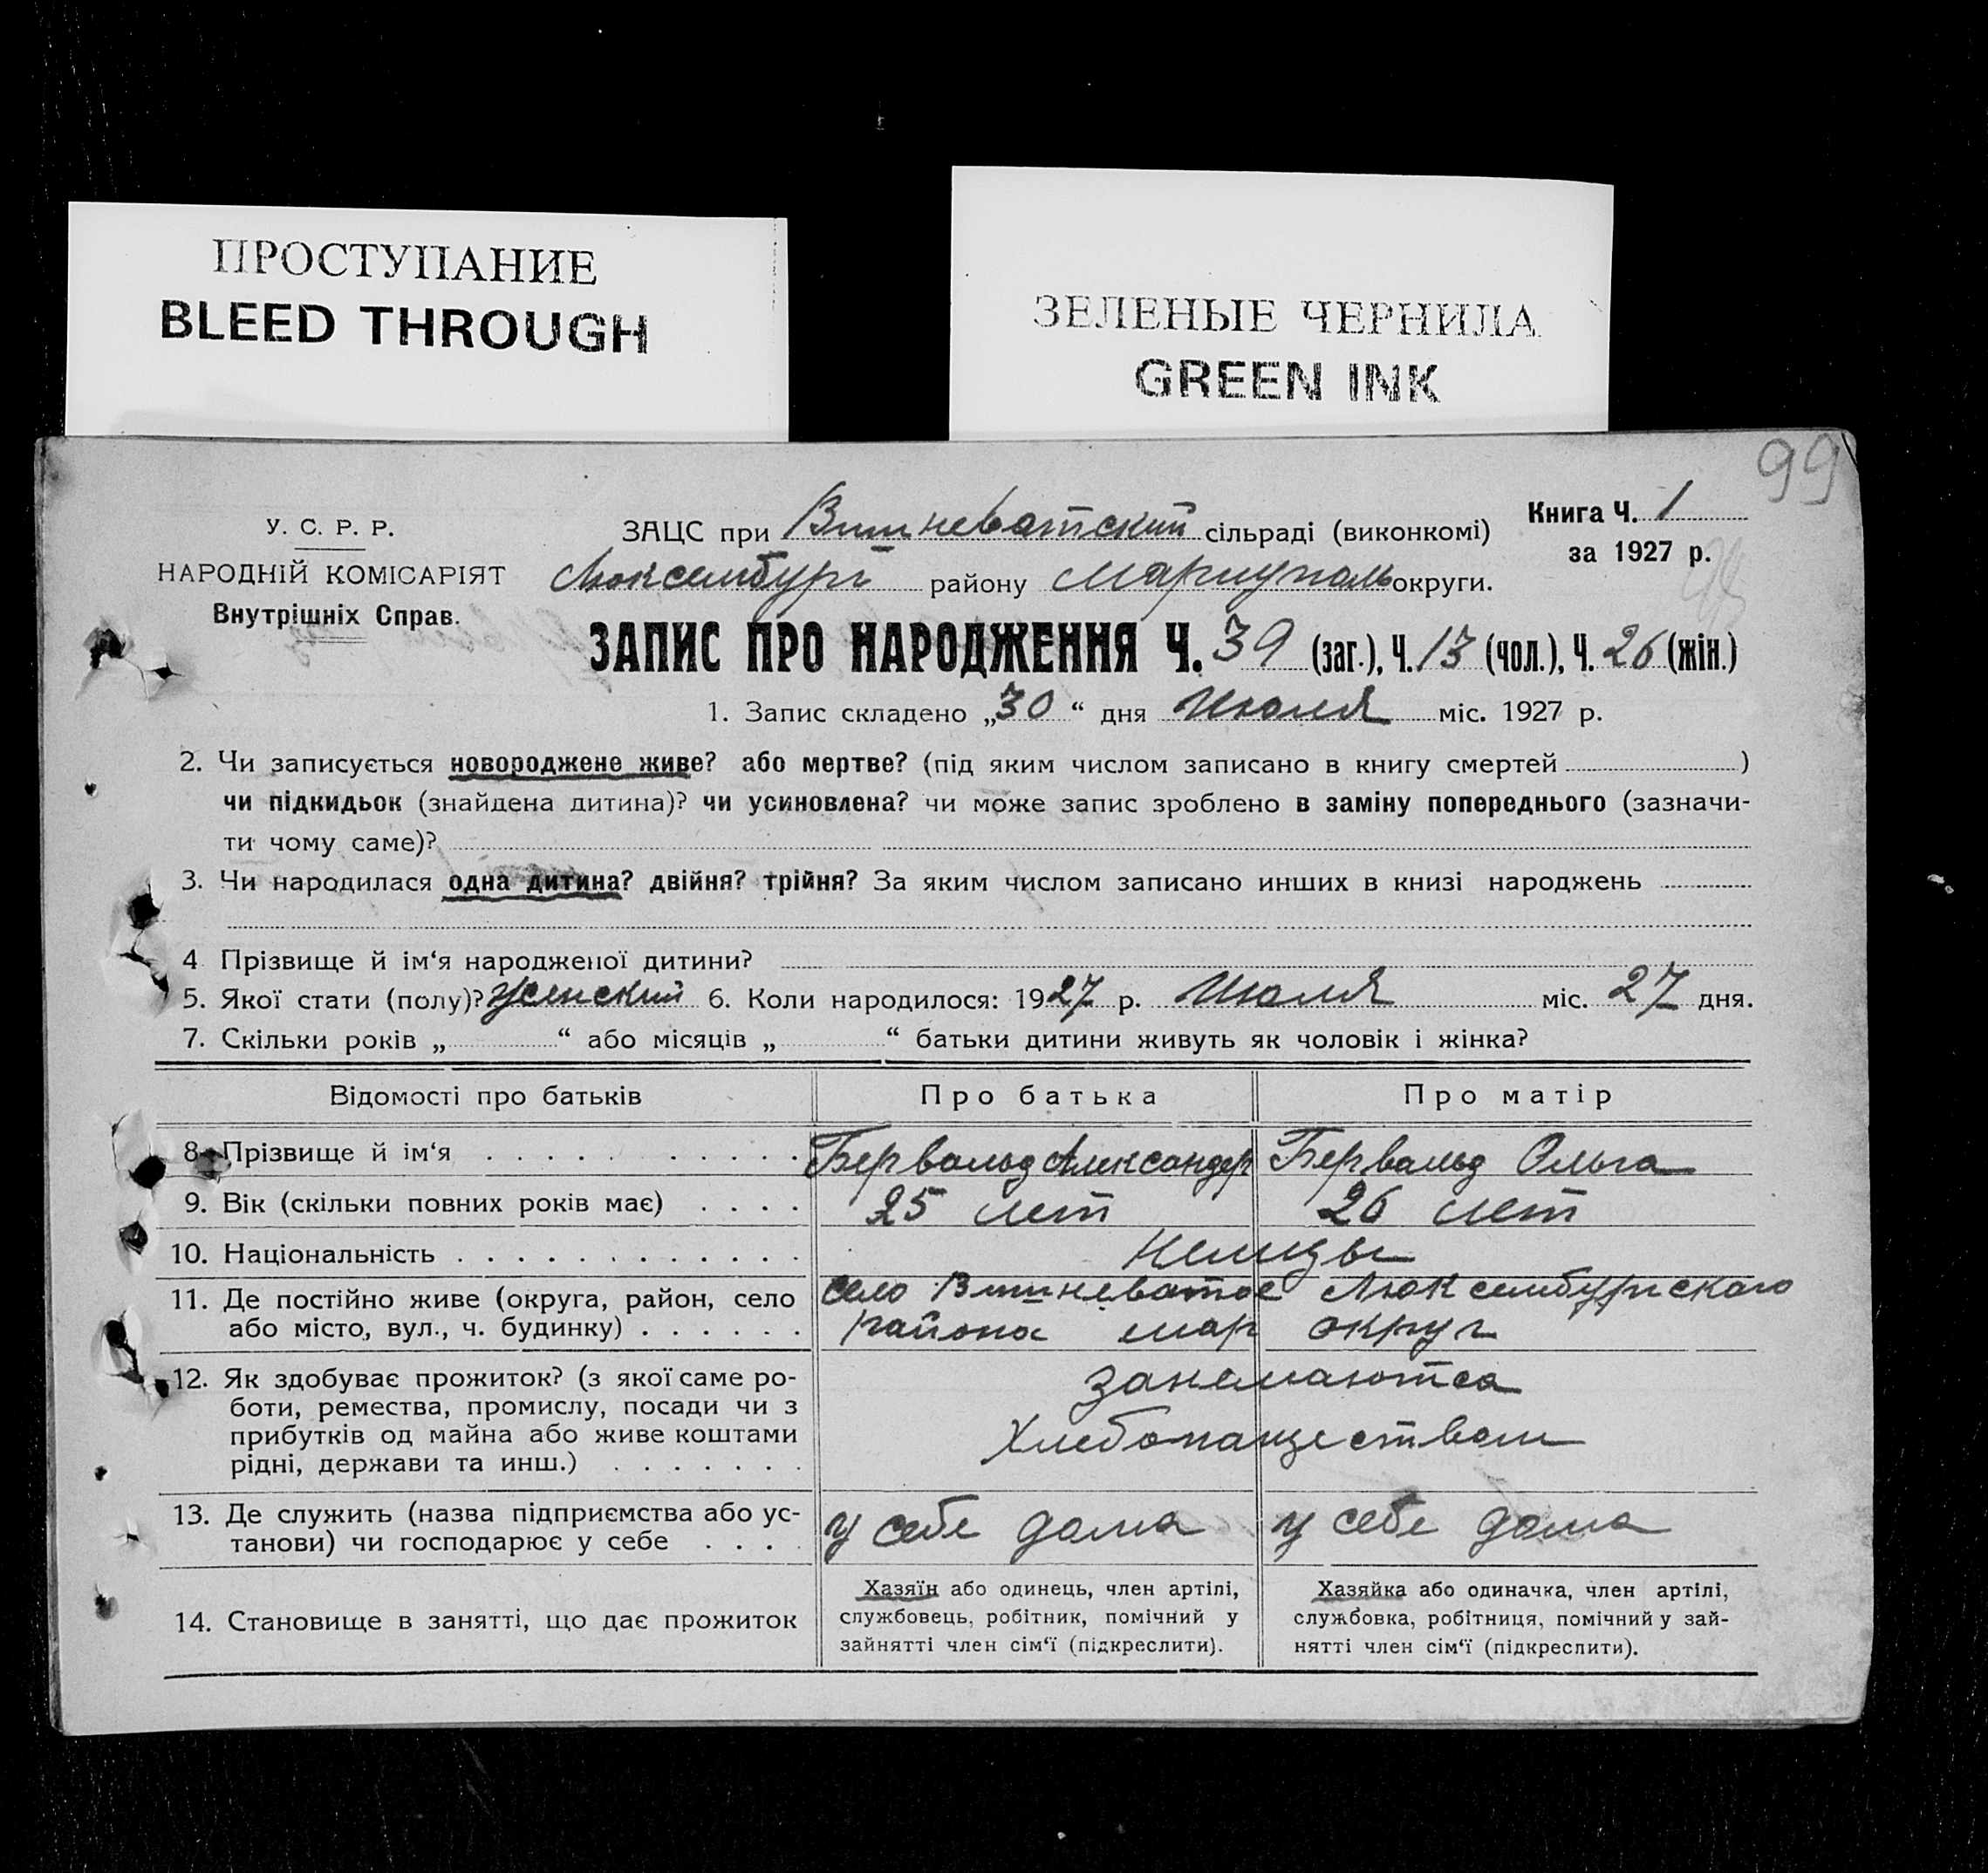 ПРОСТУПАНИЕ
BLEED THROUGH
ЗЕЛЕНЫЕ ЧЕРНИЛА
GREEN INK
99
У. С. Р. Р.
НАРОДНІЙ КОМІСАРІЯТ
Внутрішніх Справ.
ЗАЦС при Вишневатский сільраді (виконкомі)
Книга Ч. 1
за 1927 р.
Люксембург району Мариуполь округи.
ЗАПИС ПРО НАРОДЖЕННЯ Ч. 39 (заг.), Ч. 13 (чол.), Ч. 26 (жін.)
1. Запис складено „30“ дня Июля міс. 1927 р.
2. Чи записується новороджене живе? або мертве? (під яким числом записано в книгу смертей )
чи підкидьок (знайдена дитина)? чи усиновлена? чи може запис зроблено в заміну попереднього (зазначи-
ти чому саме)?
3. Чи народилася одна дитина? двійня? трійня? За яким числом записано инших в книзі народжень
4 Прізвище й ім‘я народженої дитини?
5. Якої стати (полу)? женский 6. Коли народилося: 1927 р. Июля міс. 27 дня.
7. Скільки років „ “ або місяців „ “ батьки дитини живуть як чоловік і жінка?
Відомості про батьків Про батька Про матір
8. Прізвище й ім‘я Бервальд Александер Бервальд Ольга
9. Вік (скільки повних років має) 25 лет 26 лет
10. Національність немцы
11. Де постійно живе (округа, район, село село Вишневатое Люксембургского
або місто, вул., ч. будинку) района мар округ
12. Як здобуває прожиток? (з якої саме ро-
боти, ремества, промислу, посади чи з
прибутків од майна або живе коштами
рідні, держави та инш.)
занемаются
хлебопашеством
13. Де служить (назва підприємства або ус-
танови) чи господарює у себе
у себе дома у себе дома
14. Становище в занятті, що дає прожиток
Хазяїн або одинець, член артілі,
службовець, робітник, помічний у
зайнятті член сім‘ї (підкреслити).
Хазяйка або одиначка, член артілі,
службовка, робітниця, помічний у зай-
нятті член сім‘ї (підкреслити).